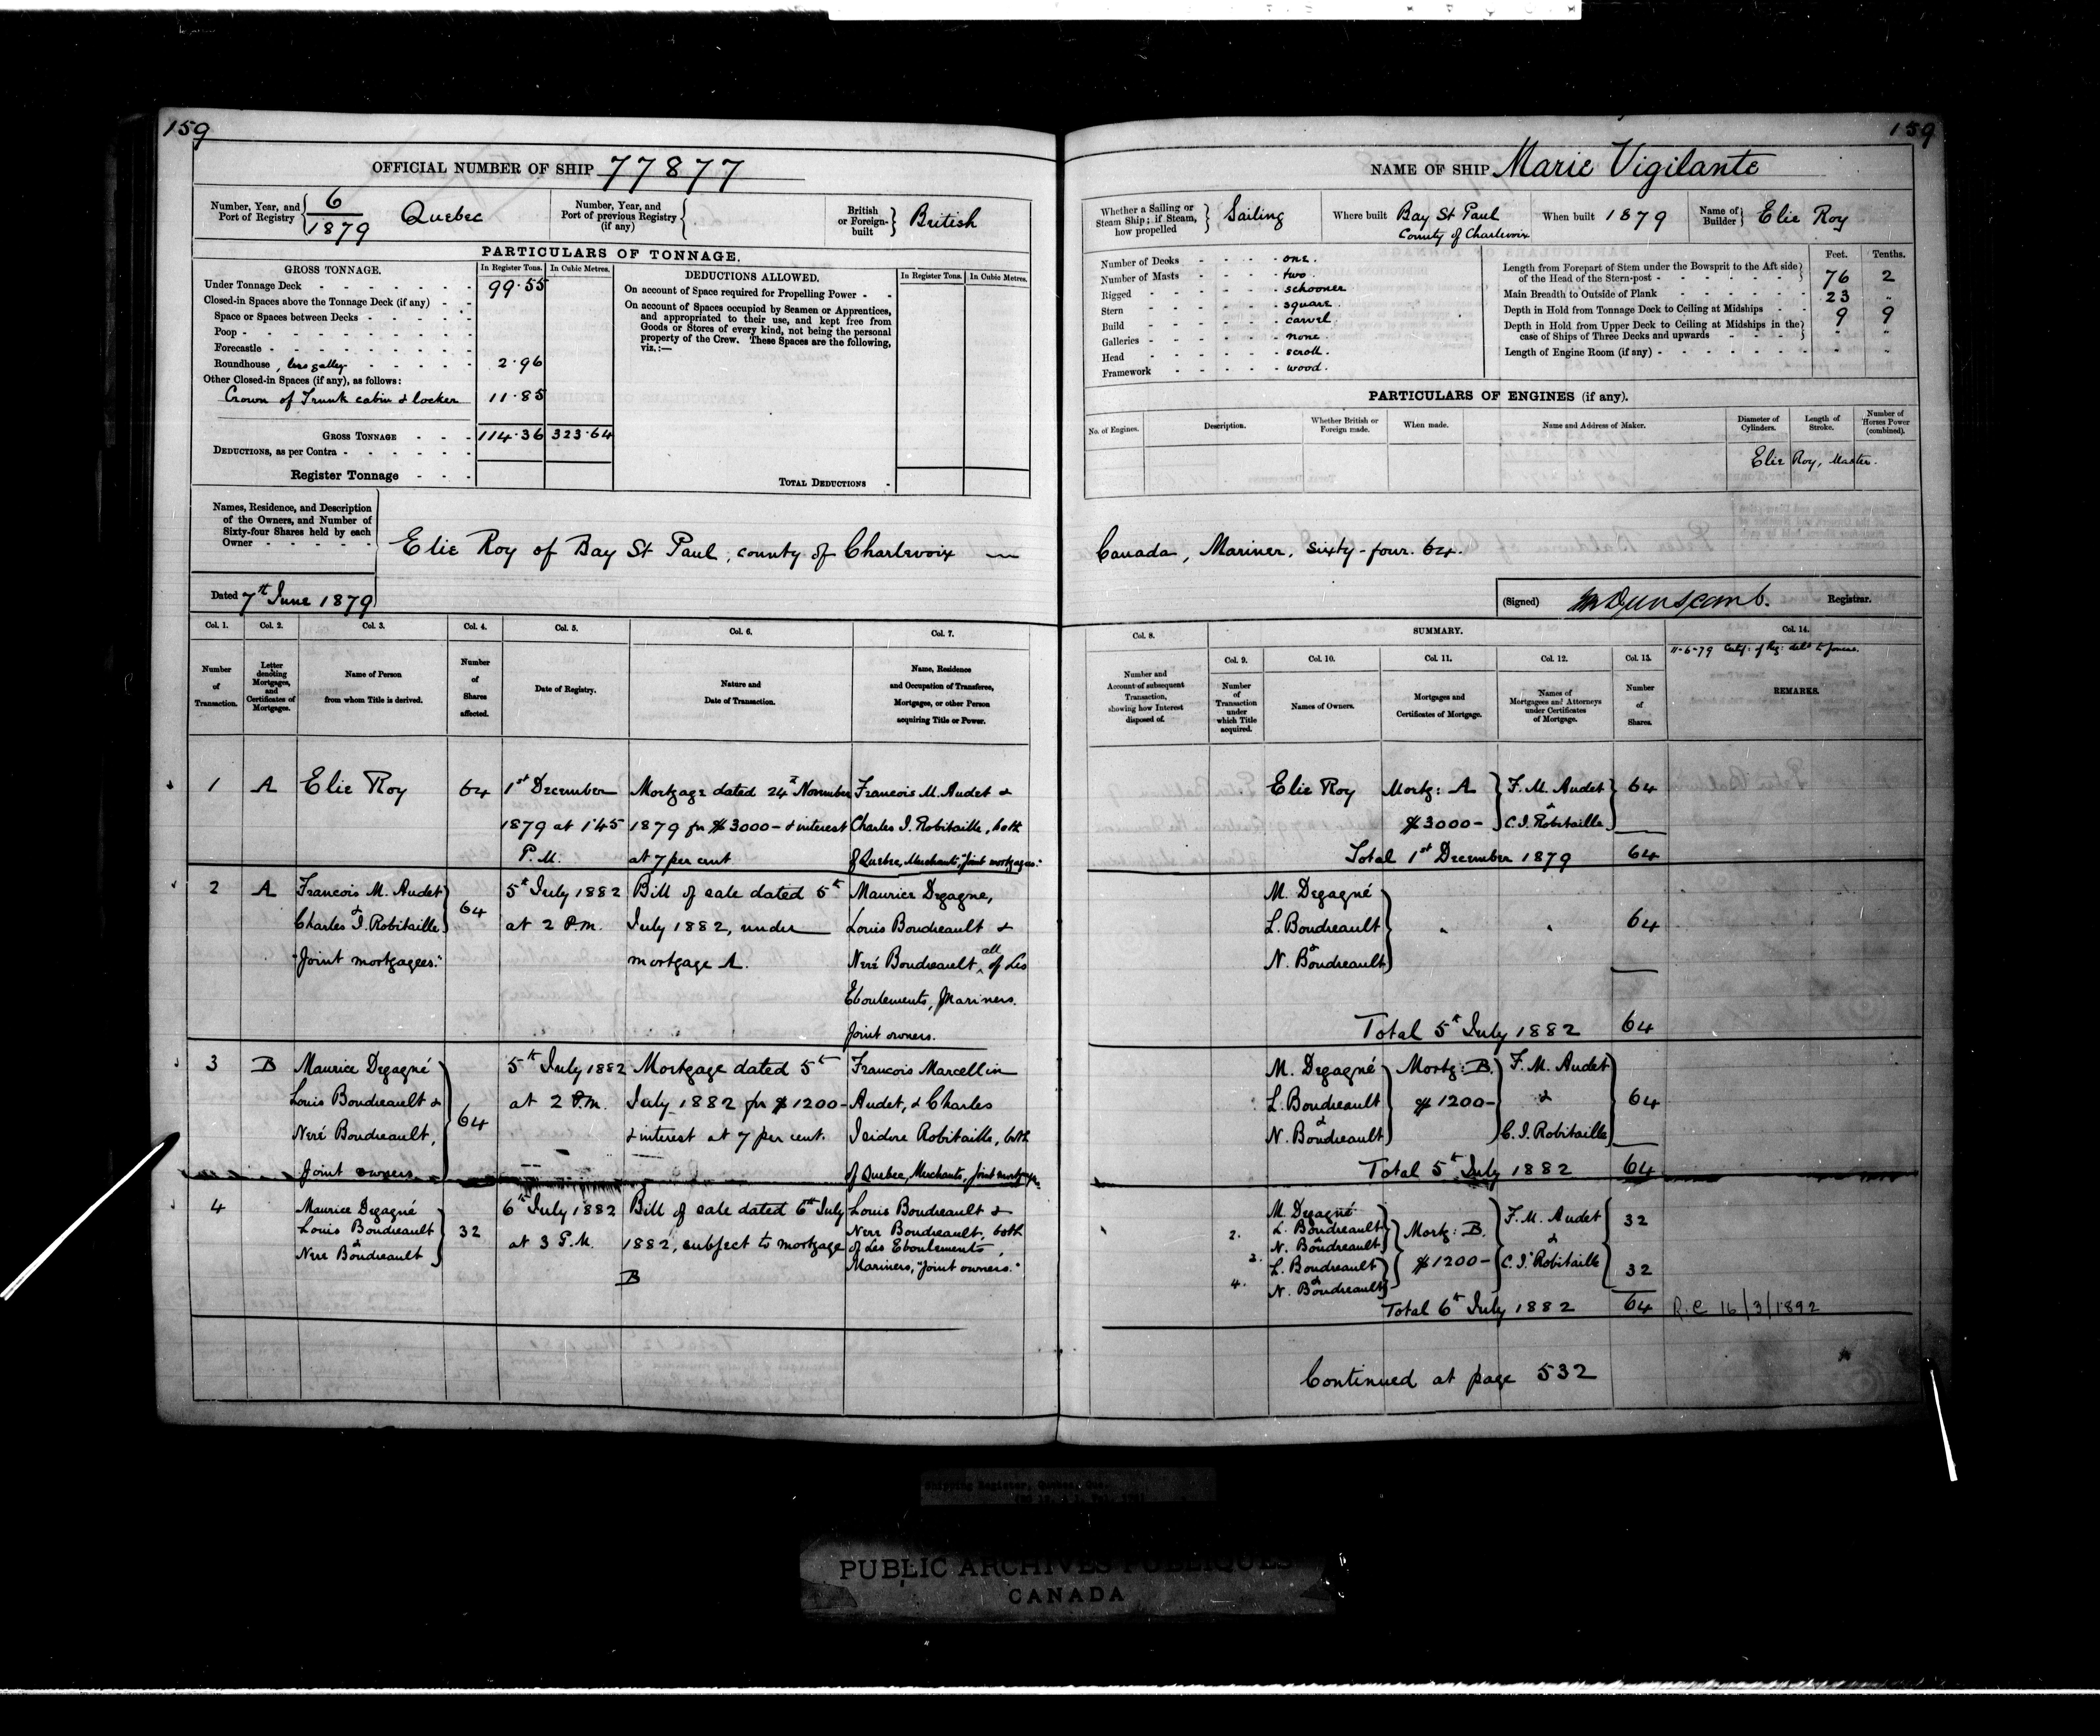 159
OFFICIAL NUMBER OF SHIP 77877
Number, Year, and Port of Registry 6/1879 Quebec
Number, Year, and Port of previous Registry (if any)
British or Foreign-built British
PARTICULARS OF TONNAGE.
GROSS TONNAGE. In Register Tons. In Cubic Metres.
Under Tonnage Deck 99.55
Closed-in Spaces above the Tonnage Deck (if any)
Space or Spaces between Decks
Poop
Forecastle
Roundhouse, less galley 2.96
Other Closed-in Spaces (if any), as follows:
Crown of Trunk cabin & locker 11.85
GROSS TONNAGE 114.36 323.64
DEDUCTIONS, as per Contra
Register Tonnage
DEDUCTIONS ALLOWED. In Register Tons. In Cubic Metres.
On account of Space required for Propelling Power
On account of Spaces occupied by Seamen or Apprentices,
and appropriated to their use, and kept free from
Goods or Stores of every kind, not being the personal
property of the Crew. These Spaces are the following,
viz.:—
TOTAL DEDUCTIONS
Names, Residence, and Description
of the Owners, and Number of
Sixty-four Shares held by each
Owner
Elie Roy of Bay St Paul, county of Charlevoix
Dated 7th June 1879
Col. 1. Col. 2. Col. 3. Col. 4. Col. 5. Col. 6. Col. 7.
Number of Transaction.
Letter denoting Mortgages, and Certificates of Mortgages.
Name of Person from whom Title is derived.
Number of Shares affected.
Date of Registry.
Nature and Date of Transaction.
Name, Residence and Occupation of Transferee, Mortgagee, or other Person acquiring Title or Power.
1 A Elie Roy 64 1st December Mortgage dated 24th November Francois M. Audet &
1879 at 1.45 1879 for $3000- & interest Charles I. Robitaille, both
P.M. at 7 per cent of Quebec, Merchants, "Joint mortgagees."
2 A Francois M. Audet 64 5th July 1882 Bill of sale dated 5th Maurice Degagne,
& Charles I. Robitaille at 2 P.M. July 1882, under Louis Boudreault &
"Joint mortgagees." mortgage A. Neré Boudreault, all of Les
Eboulements, Mariners.
Joint owners.
3 B Maurice Degagné 64 5th July 1882 Mortgage dated 5th Francois Marcellin
Louis Boudreault & at 2 P.M. July 1882 for $1200- Audet, & Charles
Neré Boudreault, & interest at 7 per cent. Isidore Robitaille, both
Joint owners of Quebec, Merchants, Joint mortgagees.
4 Maurice Degagné 32 6th July 1882 Bill of sale dated 6th July Louis Boudreault &
Louis Boudreault Nere Boudreault, both
& Nere Boudreault at 3 P.M. 1882, subject to mortgage of Les Eboulements,
B Mariners, "Joint owners."
159
NAME OF SHIP Marie Vigilante
Whether a Sailing or Steam Ship; if Steam, how propelled Sailing
Where built Bay St Paul
County of Charlevoix
When built 1879
Name of Builder Elie Roy
Number of Decks one.
Number of Masts two.
Rigged schooner
Stern square.
Build carvel.
Galleries none.
Head scroll.
Framework wood.
Feet. Tenths.
Length from Forepart of Stem under the Bowsprit to the Aft side of the Head of the Stern-post 76 2
Main Breadth to Outside of Plank 23 "
Depth in Hold from Tonnage Deck to Ceiling at Midships 9 9
Depth in Hold from Upper Deck to Ceiling at Midships in the case of Ships of Three Decks and upwards " "
Length of Engine Room (if any) " "
PARTICULARS OF ENGINES (if any).
No. of Engines. Description. Whether British or Foreign made. When made. Name and Address of Maker. Diameter of Cylinders. Length of Stroke. Number of Horses Power (combined).
Elie Roy, Master.
Canada, Mariner, sixty-four. 64.
(Signed) Dunscomb. Registrar.
Col. 8. SUMMARY. Col. 14.
Col. 9. Col. 10. Col. 11. Col. 12. Col. 13.
11-6-79
Number and Account of subsequent Transaction, showing how Interest disposed of.
Number of Transaction under which Title acquired.
Names of Owners.
Mortgages and Certificates of Mortgage.
Names of Mortgagees and Attorneys under Certificates of Mortgage.
Number of Shares.
REMARKS.
Elie Roy Mortg: A F. M. Audet 64
$3000- & C. I. Robitaille
Total 1st December 1879 64
M. Degagné
L. Boudreault " " 64
& N. Boudreault
Total 5th July 1882 64
M. Degagné Mortg: B. F. M. Audet
L. Boudreault $1200- & 64
& N. Boudreault C. I. Robitaille
Total 5th July 1882 64
M. Degagné
2. L. Boudreault Mortg: B. F. M. Audet 32
& N. Boudreault &
2. L. Boudreault $1200- C. I. Robitaille 32
4. & N. Boudreault
Total 6th July 1882 64 R.C 16/3/1892
Continued at page 532
PUBLIC ARCHIVES PUBLIQUES
CANADA